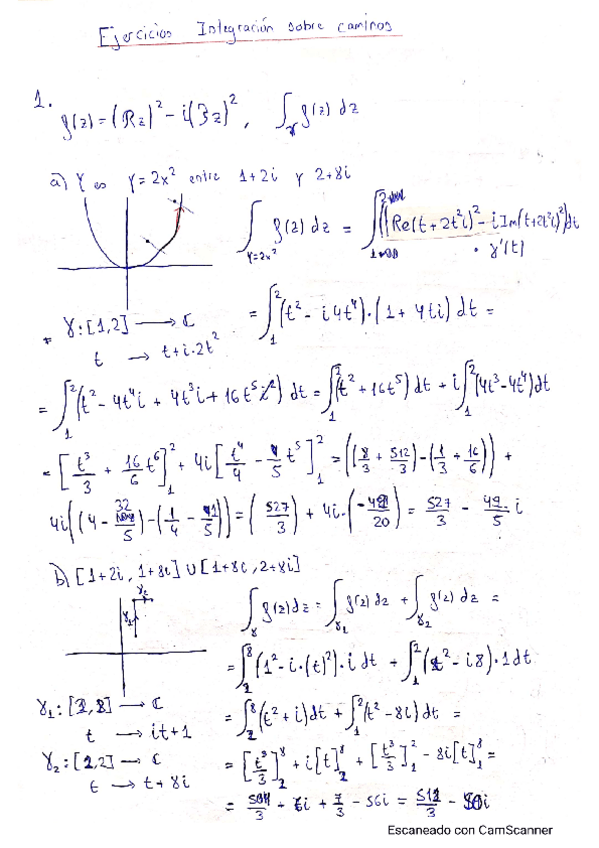 Ejercicios Integración sobre caminos
1. f(z) = (Rz)² - i(Jz)², ∫_γ f(z) dz
a) γ es y = 2x² entre 1+2i y 2+8i
∫_{y=2x²} f(z) dz = ∫_1^2 (Re(t+2t²i)² - i Im(t+2t²i)²) dt
· γ'(t)
γ: [1,2] → ℂ = ∫_1^2 (t² - i4t⁴)·(1+4ti) dt =
t → t+i·2t²
= ∫_1^2 (t² - 4t⁴i + 4t³i + 16t⁵) dt = ∫_1^2 (t² + 16t⁵) dt + i∫_1^2 (4t³ - 4t⁴) dt
= [t³/3 + 16/6 t⁶]_1^2 + 4i[t⁴/4 - 1/5 t⁵]_1^2 = ((8/3 + 512/3) - (1/3 + 16/6)) +
4i((4 - 32/5) - (1/4 - 1/5)) = (527/3) + 4i·(-49/20) = 527/3 - 49/5 i
b) [1+2i, 1+8i] ∪ [1+8i, 2+8i]
γ₂
γ₁
∫_γ f(z) dz = ∫_{γ₁} f(z) dz + ∫_{γ₂} f(z) dz =
= ∫_2^8 (1² - i·(t)²)·i dt + ∫_1^2 (t² - i8)·1 dt
γ₁: [2,8] → ℂ = ∫_2^8 (t² + i) dt + ∫_1^2 (t² - 8i) dt =
t → it+1
γ₂: [1,2] → ℂ = [t³/3]_2^8 + i[t]_2^8 + [t³/3]_1^2 - 8i[t]_1^8 =
t → t+8i
= 504/3 + 6i + 7/3 - 56i = 511/3 - 50i
Escaneado con CamScanner